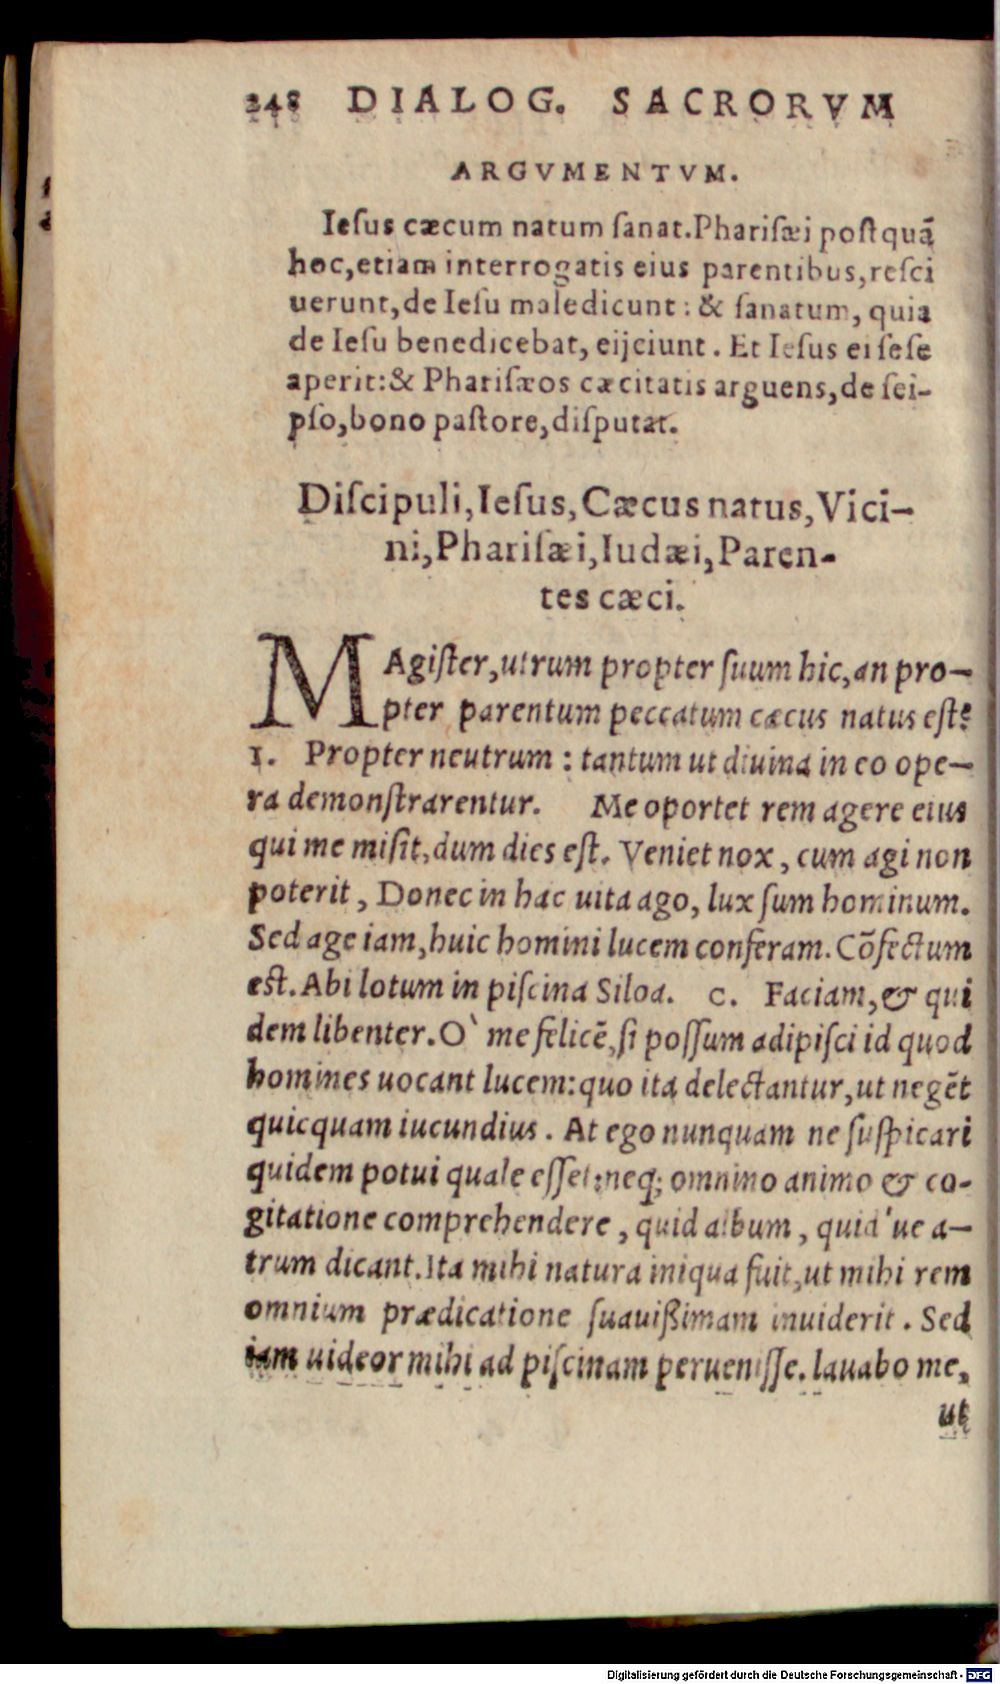 248 DIALOG. SACRORVM
ARGVMENTVM.
Ieſus cæcum natum ſanat. Phariſæi poſtquã
hoc, etiam interrogatis eius parentibus, reſci
uerunt, de Ieſu maledicunt: & ſanatum, quia
de Ieſu benedicebat, eijciunt. Et Ieſus ei ſeſe
aperit: & Phariſæos cæcitatis arguens, de ſei-
pſo, bono paſtore, diſputat.
Diſcipuli, Ieſus, Cæcus natus, Vici-
ni, Phariſæi, Iudæi, Paren-
tes cæci.
MAgiſter, utrum propter ſuum hic, an pro-
pter parentum peccatum cæcus natus eſt?
I. Propter neutrum: tantum ut diuina in eo ope-
ra demonſtrarentur. Me oportet rem agere eius
qui me miſit, dum dies eſt. Veniet nox, cum agi non
poterit, Donec in hac uita ago, lux ſum hominum.
Sed age iam, huic homini lucem conferam. Cõfectum
eſt. Abi lotum in piſcina Siloa. C. Faciam, & qui
dem libenter. O` me felicẽ, ſi poſſum adipiſci id quod
homines uocant lucem: quo ita delectantur, ut negẽt
quicquam iucundius. At ego nunquam ne ſuſpicari
quidem potui quale eſſet: neq; omnino animo & co-
gitatione comprehendere, quid album, quid'ue a-
trum dicant. Ita mihi natura iniqua fuit, ut mihi rem
omnium prædicatione ſuauißimam inuiderit. Sed
iam uideor mihi ad piſcinam perueniſſe. lauabo me,
ut
Digitalisierung gefördert durch die Deutsche Forschungsgemeinschaft - DFG